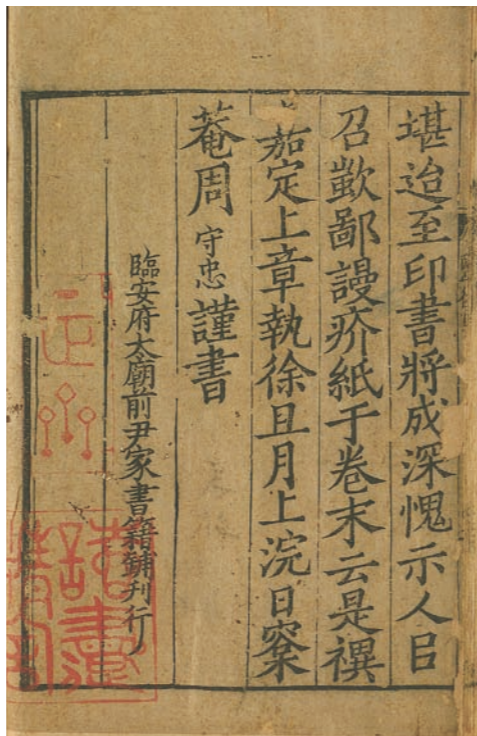 堪迨至印書將成深愧示人㠯
召歎鄙謾疥紙于卷末云是禩
嘉定上章執徐且月上浣日寮
菴周守忠謹書
臨安府太廟前尹家書籍鋪刊行